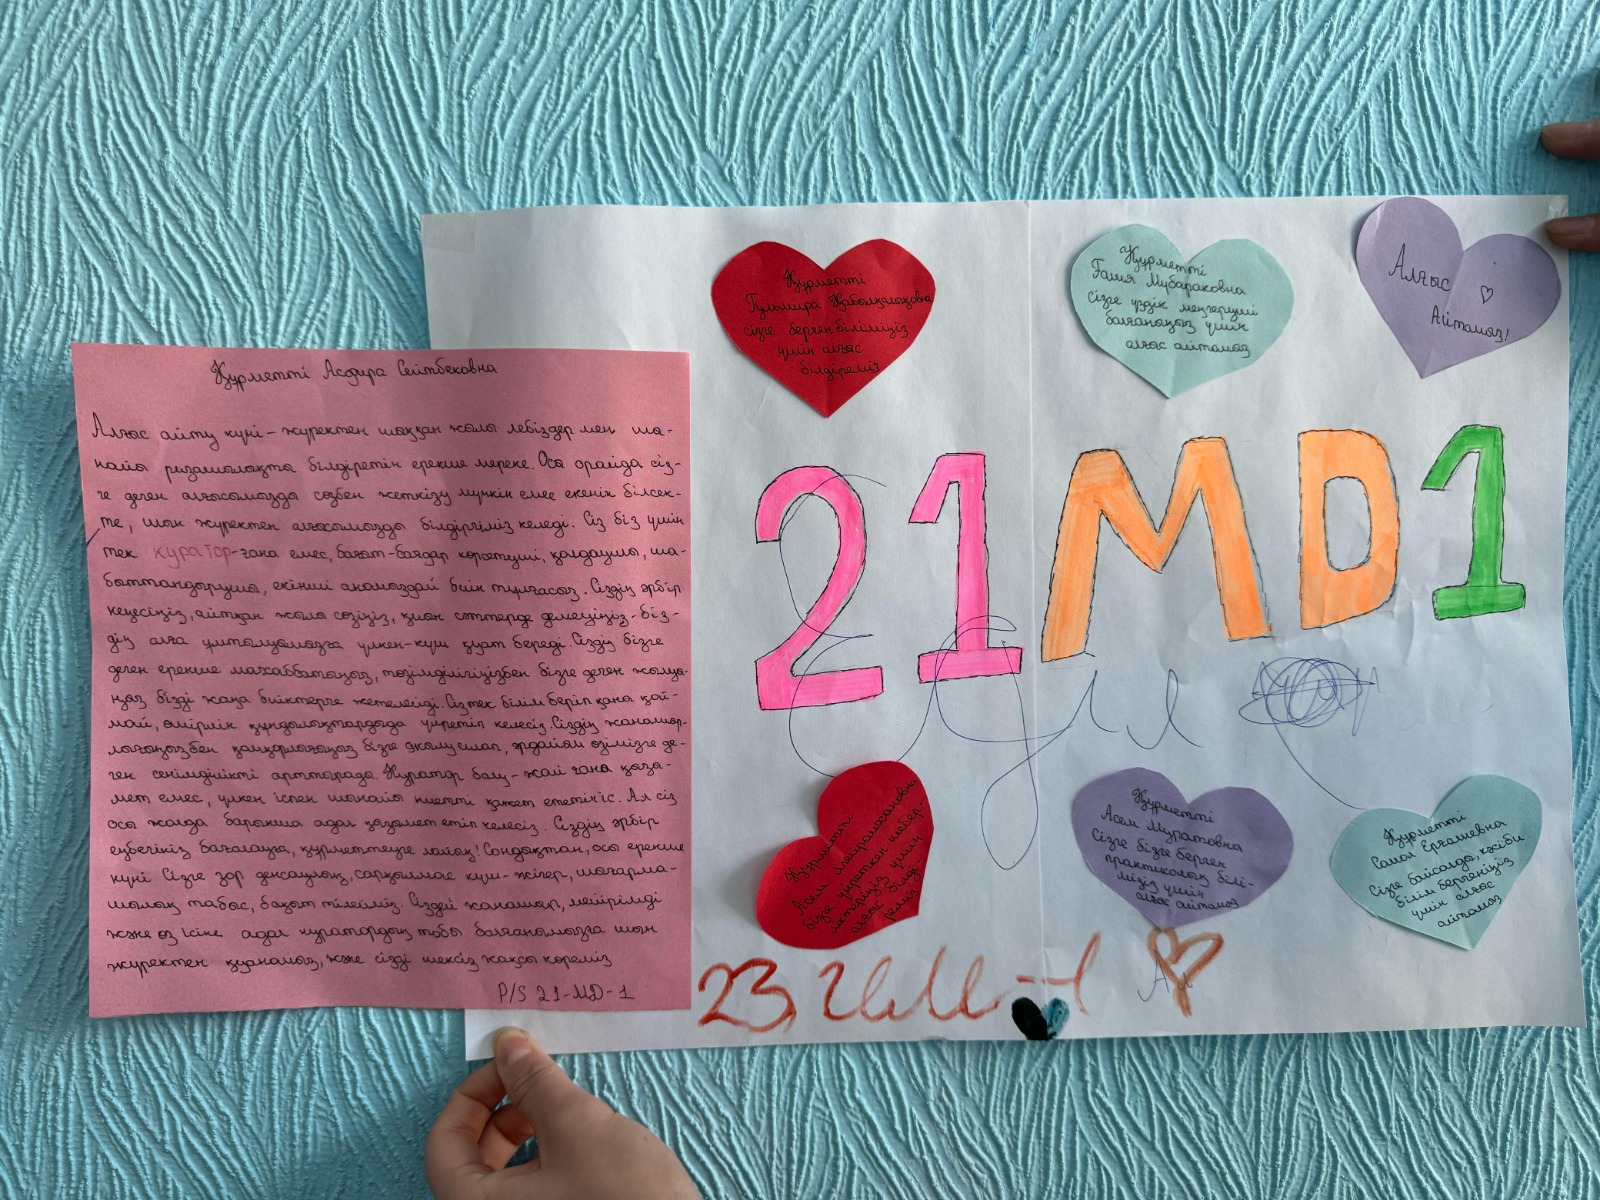 Құрметті Асфира Сейтбековна
Алғыс айту күні – жүректен шыққан жылы лебіздер мен ша-
найы ризашылықты білдіретін ерекше мереке. Осы орайда сіз-
ге деген алғысымызды сөзбен жеткізу мүмкін емес екенін білсек-
те, шын жүректен алғысымызды білдіргіміз келеді. Сіз біз үшін
тек куратор-ғана емес, бағыт-бағдар көрсетуші, қолдаушы, ша-
быттандырушы, екінші анамыздай биік тұлғасыз. Сіздің әрбір
кеңесіңіз, айтқан жылы сөзіңіз, қиын сәттерде демеуіңіз - біз-
дің алға ұмтылуымызға үлкен-күш қуат береді. Сіздің бізге
деген ерекше махаббатыңыз, төзімділігіңізбен бізге деген жылуы-
ңыз бізді жаңа биіктерге жетелейді. Сіз тек білім беріп қана қой-
май, өмірлік құндылықтардыда үйретіп келесіз. Сіздің жанашыр-
лығыңызбен қамқорлығыңыз бізге жылу сыйлап, әрдайым өзімізге де-
ген сенімділікті арттырады. Куратор болу - жәй ғана қызы-
мет емес, үлкен іспен шынайы ниетті қажет ететін іс. Ал сіз
осы жолда барынша адал қызымет етіп келесіз. Сіздің әрбір
еңбегіңіз бағалауға, құрметтеуге лайық! Сондықтан, осы ерекше
күні Сізге зор денсаулық, сарқылмас күш-жігер, шығарма-
шылық табыс, бақыт тілейміз. Сіздей жанашыр, мейірімді
және өз ісіне адал куратордың тобы болғанымызға шын
жүректен қуанамыз, және сізді шексіз жақсы көреміз
P/S 21-МД-1
Құрметті
Гульмира Қабыкеновна
сізге берген біліміңіз
үшін алғыс
білдіреміз
Құрметті
Галия Мубараковна
Сізге үздік меңгеруші
болғаныңыз үшін
алғыс айтамыз
Алғыс
Айтамыз!
21MD1
Құрметті
Асем
бізге үйреткен шебер-
ліктеріңіз үшін
алғыс білді-
реміз
Құрметті
Асем Муратовна
Сізге бізге берген
практикалық білі-
міңіз үшін
алғыс айтамыз
Құрметті
Самал Ергашевна
Сізге байсалды, кәсіби
білім бергеніңіз
үшін алғыс
айтамыз